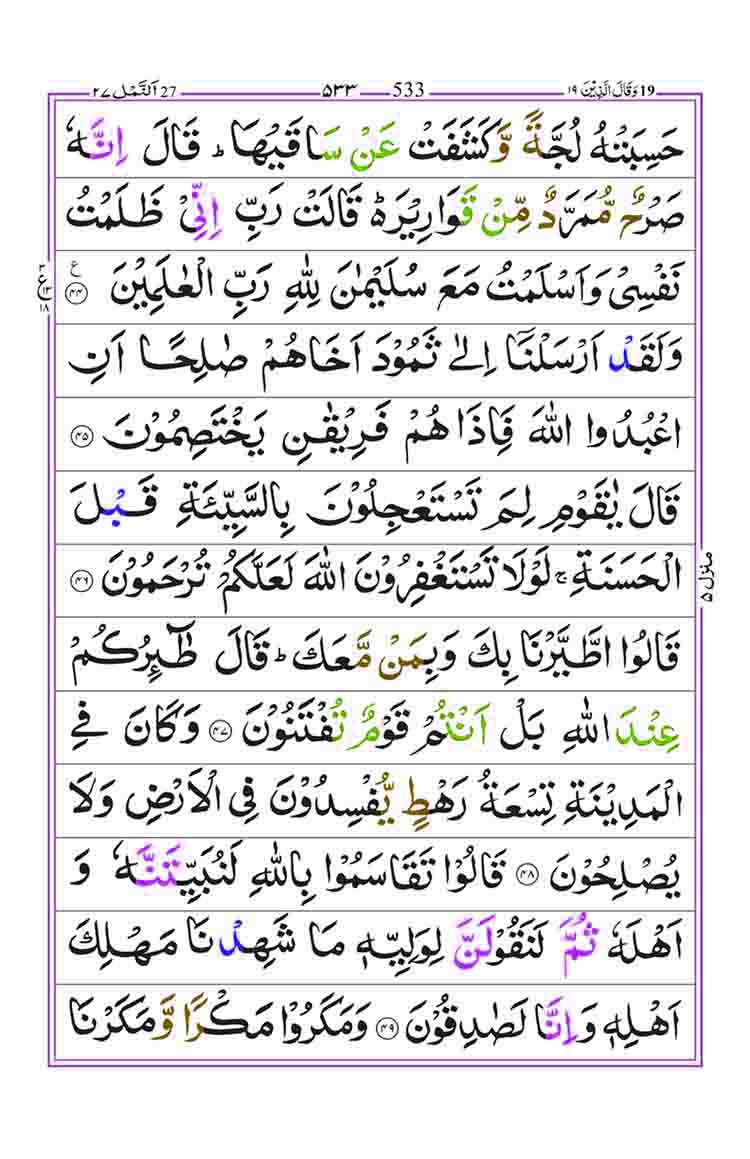 19 وَقَالَ الَّذِيْنَ ١٩ 533 ۵۳۳ 27 اَلنَّمْل ٢٧
حَسِبَتْهُ لُجَّةً وَّكَشَفَتْ عَنْ سَاقَيْهَا ؕ قَالَ اِنَّهٗ
صَرْحٌ مُّمَرَّدٌ مِّنْ قَوَارِيْرَ ؕ۬ قَالَتْ رَبِّ اِنِّىْ ظَلَمْتُ
نَفْسِىْ وَاَسْلَمْتُ مَعَ سُلَيْمٰنَ لِلّٰهِ رَبِّ الْعٰلَمِيْنَ ع ۴۴
وَلَقَدْ اَرْسَلْنَاۤ اِلٰى ثَمُوْدَ اَخَاهُمْ صٰلِحًا اَنِ
اعْبُدُوا اللّٰهَ فَاِذَا هُمْ فَرِيْقٰنِ يَخْتَصِمُوْنَ ۴۵
قَالَ يٰقَوْمِ لِمَ تَسْتَعْجِلُوْنَ بِالسَّيِّئَةِ قَبْلَ
الْحَسَنَةِ ۚ لَوْلَا تَسْتَغْفِرُوْنَ اللّٰهَ لَعَلَّكُمْ تُرْحَمُوْنَ ۴۶
قَالُوا اطَّيَّرْنَا بِكَ وَبِمَنْ مَّعَكَ ؕ قَالَ طٰٓئِرُكُمْ
عِنْدَ اللّٰهِ بَلْ اَنْتُمْ قَوْمٌ تُفْتَنُوْنَ ۴۷ وَكَانَ فِى
الْمَدِيْنَةِ تِسْعَةُ رَهْطٍ يُّفْسِدُوْنَ فِى الْاَرْضِ وَلَا
يُصْلِحُوْنَ ۴۸ قَالُوْا تَقَاسَمُوْا بِاللّٰهِ لَنُبَيِّتَنَّهٗ وَ
اَهْلَهٗ ثُمَّ لَنَقُوْلَنَّ لِوَلِيِّهٖ مَا شَهِدْنَا مَهْلِكَ
اَهْلِهٖ وَاِنَّا لَصٰدِقُوْنَ ۴۹ وَمَكَرُوْا مَكْرًا وَّمَكَرْنَا
ع ١٣ ١٨
منزل ۵